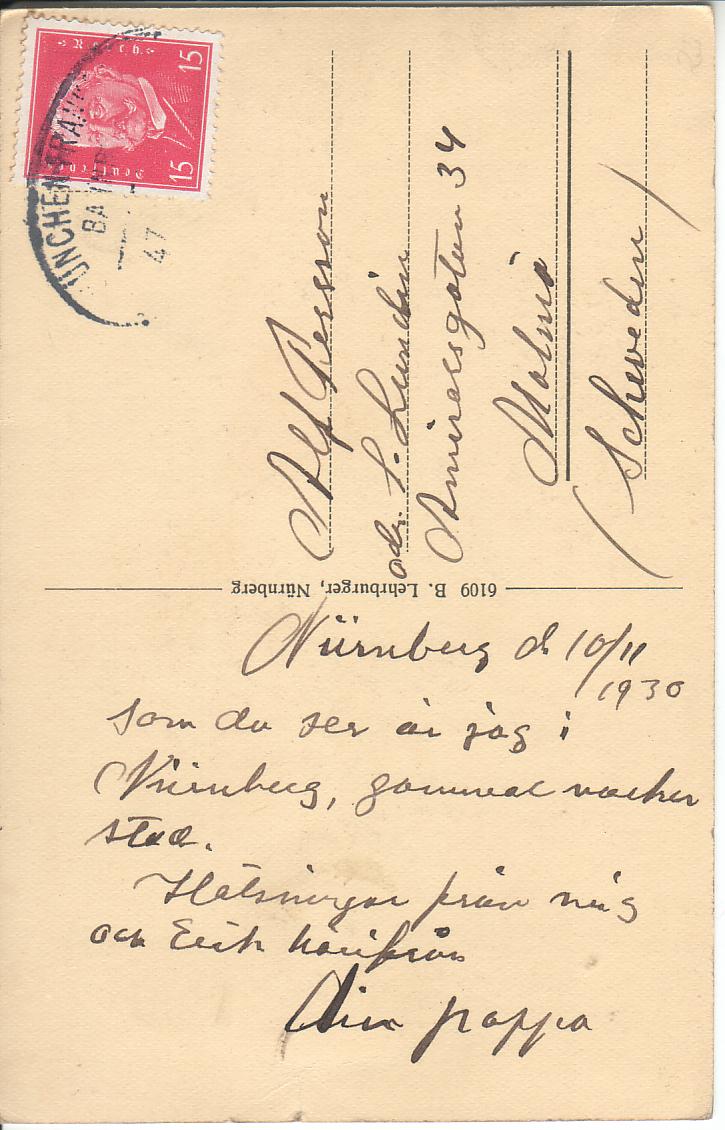 Deutsches Reich
15 15
MÜNCHEN-FRANKF
BAHNP
47
Alf Persson
adr. S. Lundin
Amiralsgatan 34
Malmö
(Scheveden)
6109 B. Lehrburger, Nürnberg
Nürnberg d. 10/11
1930
Som du ser är jag i
Nürnberg, gammal vacker
stad.
Hälsningar från mig
och Erik härifrån
Din pappa